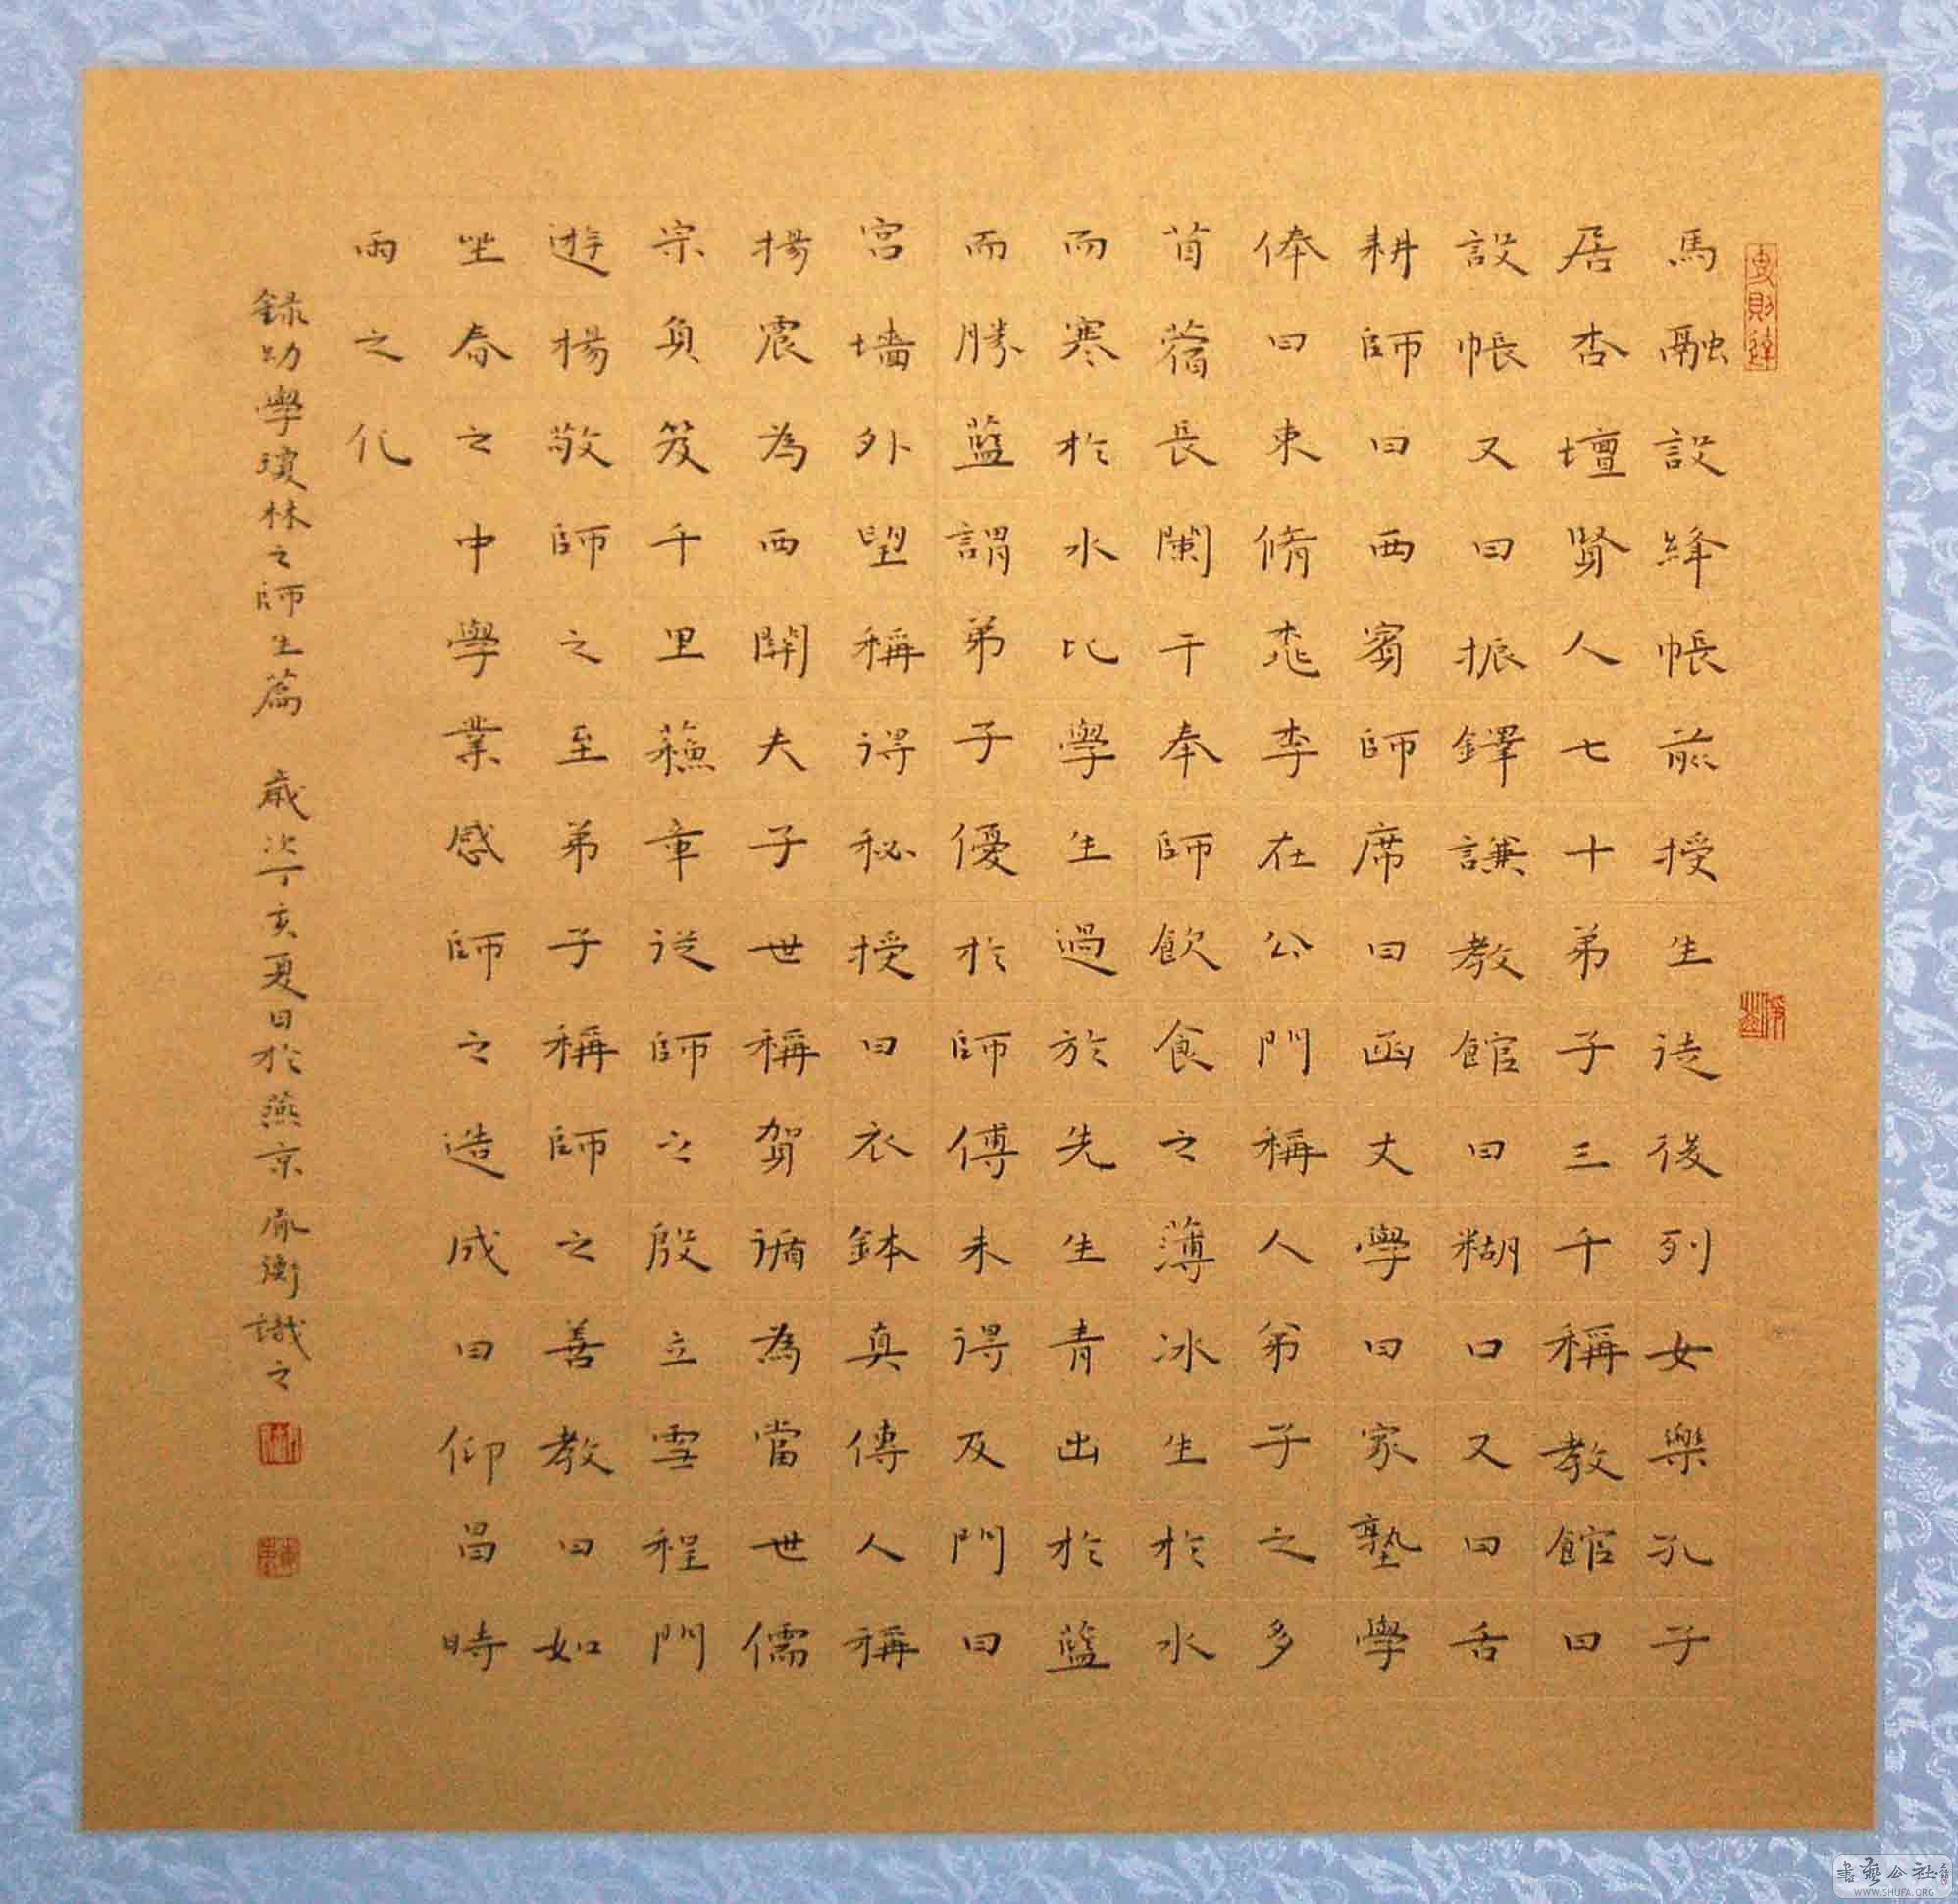 馬融設絳帳前授生徒後列女樂孔子
居杏壇賢人七十弟子三千稱教館曰
設帳又曰振鐸謙教館曰糊口又曰舌
耕師曰西賓師席曰函丈學曰家塾學
俸曰束脩桃李在公門稱人弟子之多
苜蓿長闌干奉師飲食之薄冰生於水
而寒於水比學生過於先生青出於藍
而勝藍謂弟子優於師傅未得及門曰
宮墻外望稱得秘授曰衣鉢真傳人稱
楊震為西關夫子世稱賀循為當世儒
宗負笈千里蘇章從師之殷立雪程門
遊楊敬師之至弟子稱師之善教曰如
坐春之中學業感師之造成曰仰昌時
雨之化
録幼學瓊林之師生篇 歲次丁亥夏日於燕京 衡識之
書藝公社
WWW.SHUFA.ORG